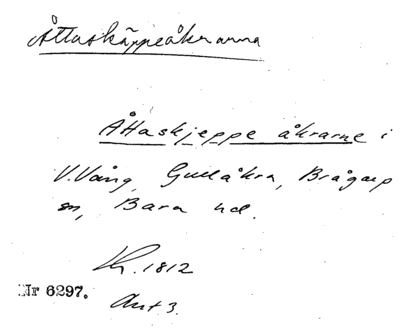 Åttaskäppeåkrarna
Åttaskjeppe åkrarne i
V. Vång, Gullåkra, Brågarp
sn, Bara hd.
Kr. 1812
Nr 6297. Ant 3.